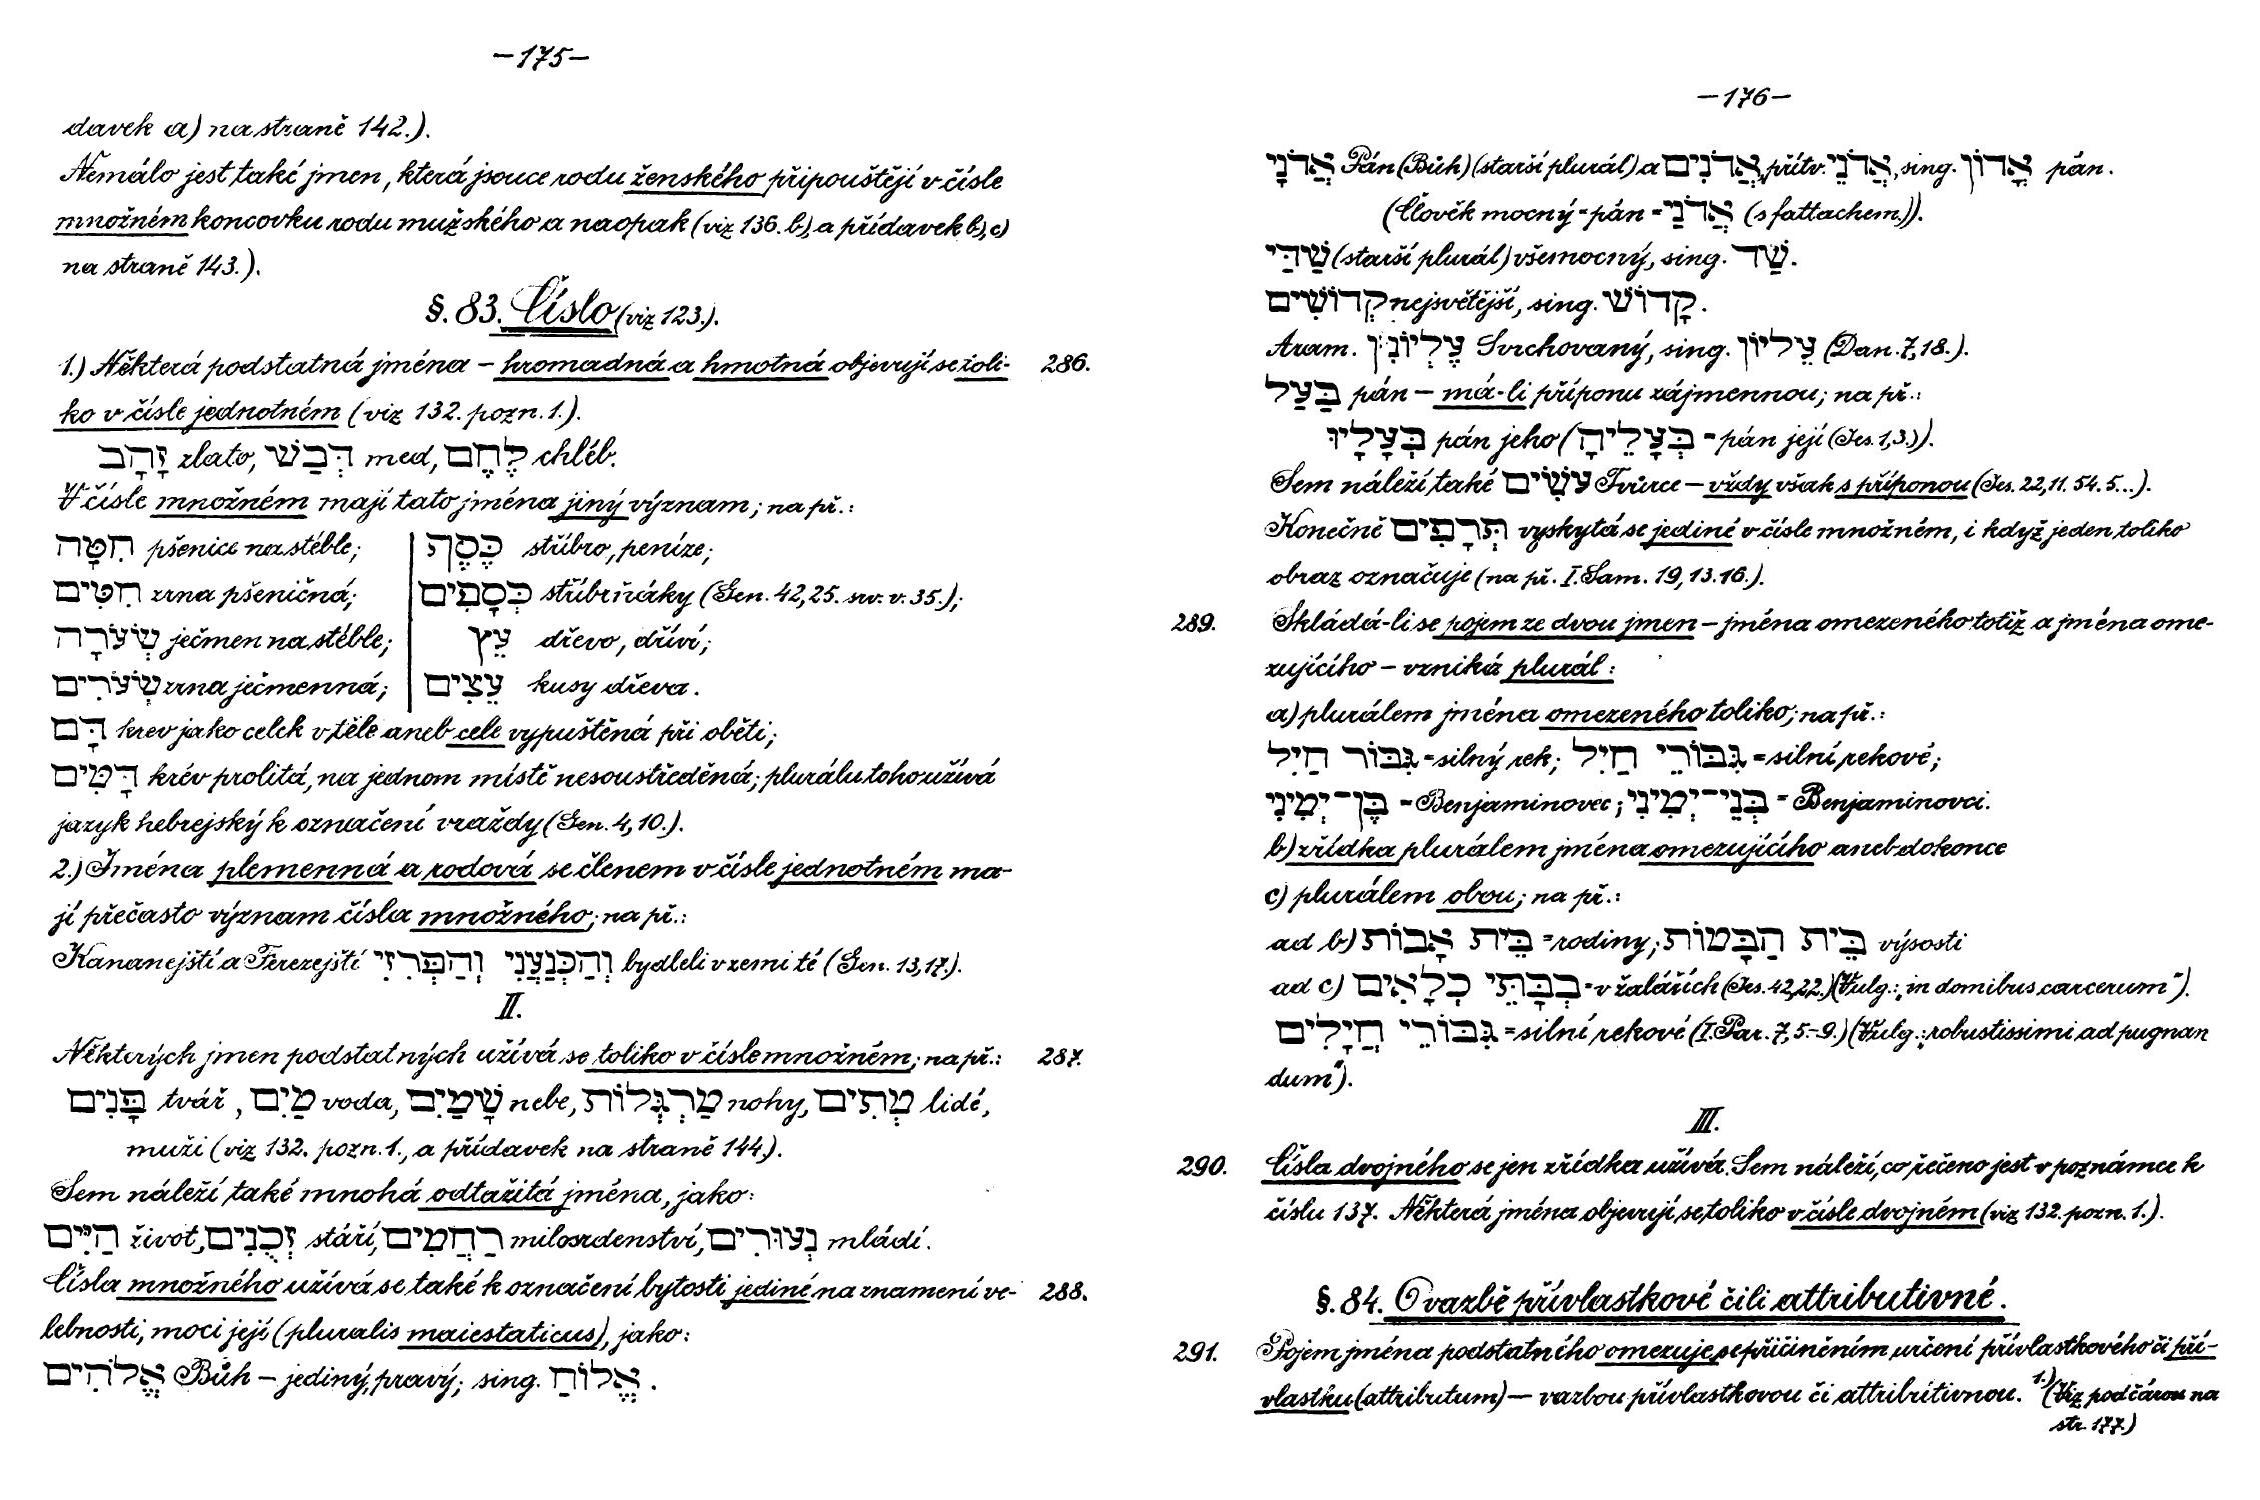 —175—
davek a) na straně 142.).
Nemálo jest také jmen, která jsouce rodu ženského připouštějí v čísle
množném koncovku rodu mužského a naopak (viz 136. b), a přídavek b), c)
na straně 143.).
§. 83. Číslo (viz 123.).
1.) Některá podstatná jména – hromadná a hmotná objevují se toli- 286.
ko v čísle jednotném (viz 132. pozn. 1.).
זָהָב zlato, דְּבַשׁ med, לֶחֶם chléb.
V čísle množném mají tato jména jiný význam; na př.:
חִטָּה pšenice na stéble; כֶּסֶף stříbro, peníze;
חִטִּים zrna pšeničná; כְּסָפִים stříbrňáky (Gen. 42, 25. sw. v. 35.);
שְׂעֹרָה ječmen na stéble; עֵץ dřevo, dříví;
שְׂעֹרִים zrna ječmenná; עֵצִים kusy dřeva.
דָּם krev jako celek v těle aneb cele vypuštěná při oběti;
דָּמִּים krév prolitá, na jednom místě nesoustředěná; plurálu toho užívá
jazyk hebrejský k označení vraždy (Gen. 4, 10.).
2.) Jména plemenná a rodová se členem v čísle jednotném ma-
jí přečasto význam čísla množného; na př.:
Kananejští a Ferezejští וְהַכְּנַעֲנִי וְהַפְּרִזִּי bydleli v zemi té (Gen. 13, 17.).
II.
Některých jmen podstatných užívá se toliko v čísle množném; na př.: 287.
פָּנִים tvář, מַיִם voda, שָׁמַיִם nebe, מַרְגְּלוֹת nohy, מְתִים lidé,
muži (viz 132. pozn. 1., a přídavek na straně 144.).
Sem náleží také mnohá odtažitá jména, jako:
חַיִּים život, זְקֻנִים stáří, רַחֲמִים milosrdenství, נְעוּרִים mládí.
Čísla množného užívá se také k označení bytosti jediné na znamení ve- 288.
lebnosti, moci její (pluralis maiestaticus), jako:
אֱלֹהִים Bůh – jediný, pravý; sing. אֱלוֹהַּ .
—176—
אֲדֹנָי Pán (Bůh) (starší plurál) a אֲדֹנִים, přítv. אֲדֹנֵי, sing. אָדוֹן pán.
(Člověk mocný = pán = אֲדֹנַי (s fattachem.)).
שַׁדַּי (starší plurál) všemocný, sing. שַׁד.
קְדוֹשִׁים nejsvětější, sing. קָדוֹשׁ.
Aram. עֶלְיוֹנִין Svrchovaný, sing. עֶלִיוֹן (Dan. 7, 18.).
בַּעַל pán – má-li příponu zájmennou; na př.:
בְּעָלָיו pán jeho (בְּעָלֵיהָ = pán její (Jes. 1, 3.)).
Sem náleží také עֹשִׂים Tvůrce – vždy však s příponou (Jes. 22, 11. 54. 5...).
Konečně תְּרָפִים vyskytá se jediné v čísle množném, i když jeden toliko
obraz označuje (na př. I. Sam. 19, 13. 16.).
289. Skládá-li se pojem ze dvou jmen – jména omezeného totiž a jména ome-
zujícího – vzniká plurál:
a) plurálem jména omezeného toliko; na př.:
גִּבּוֹר חַיִל = silný rek; גִּבּוֹרֵי חַיִל = silní rekové;
בֶּן־יְמִינִי = Benjaminovec; בְּנֵי־יְמִינִי = Benjaminovci.
b) zřídka plurálem jména omezujícího aneb dokonce
c) plurálem obou; na př.:
ad b) בֵּית אָבוֹת = rodiny; בֵּית הַבָּמוֹת výsosti
ad c) בְּבָתֵּי כְלָאִים = v žalářích (Jes. 42, 22.) (Vulg.: „in domibus carcerum").
גִּבּוֹרֵי חֲיָלִים = silní rekové (I. Par. 7, 5.–9.) (Vulg.: „robustissimi ad pugnan
dum").
III.
290. Čísla dvojného se jen zřídka užívá. Sem náleží, co řečeno jest v poznámce k
číslu 137. Některá jména objevují se toliko v čísle dvojném (viz 132. pozn. 1.).
§. 84. O vazbě přívlastkové čili attributivné.
291. Pojem jména podstatného omezuje se přičiněním určení přívlastkového či pří-
vlastku (attributum) — vazbou přívlastkovou či attributivnou. 1.) (Viz pod čárou na
str. 177.)